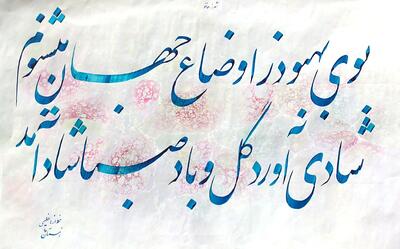 بوی بهبود ز اوضاع جهان میشنوم
شادی آورد گل و باد صبا شاد آمد